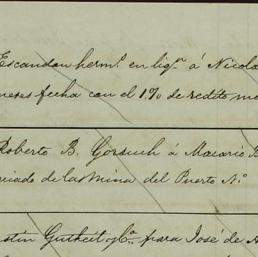 Escandon herm.ˢ en liq.ⁿ á Nicola
meses fecha con el 1% de redito me
Roberto B. Gorsuch á Macario B
de las Mina del Puerto N.º
Gutheil y C.ª para José de A